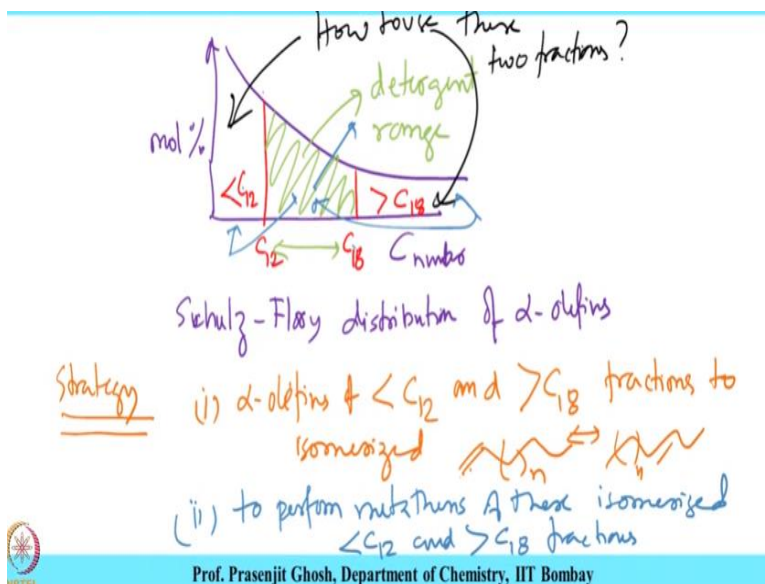 How to use these
two fractions?
detergent
range
mol %
<C12
>C18
C12
C18
C number
Schulz-Flory distribution of α-olefins
Strategy
(i) α-olefins of <C12 and >C18 fractions to
isomerized
n
n
(ii) to perform metathesis of these isomerized
<C12 and >C18 fractions
Prof. Prasenjit Ghosh, Department of Chemistry, IIT Bombay